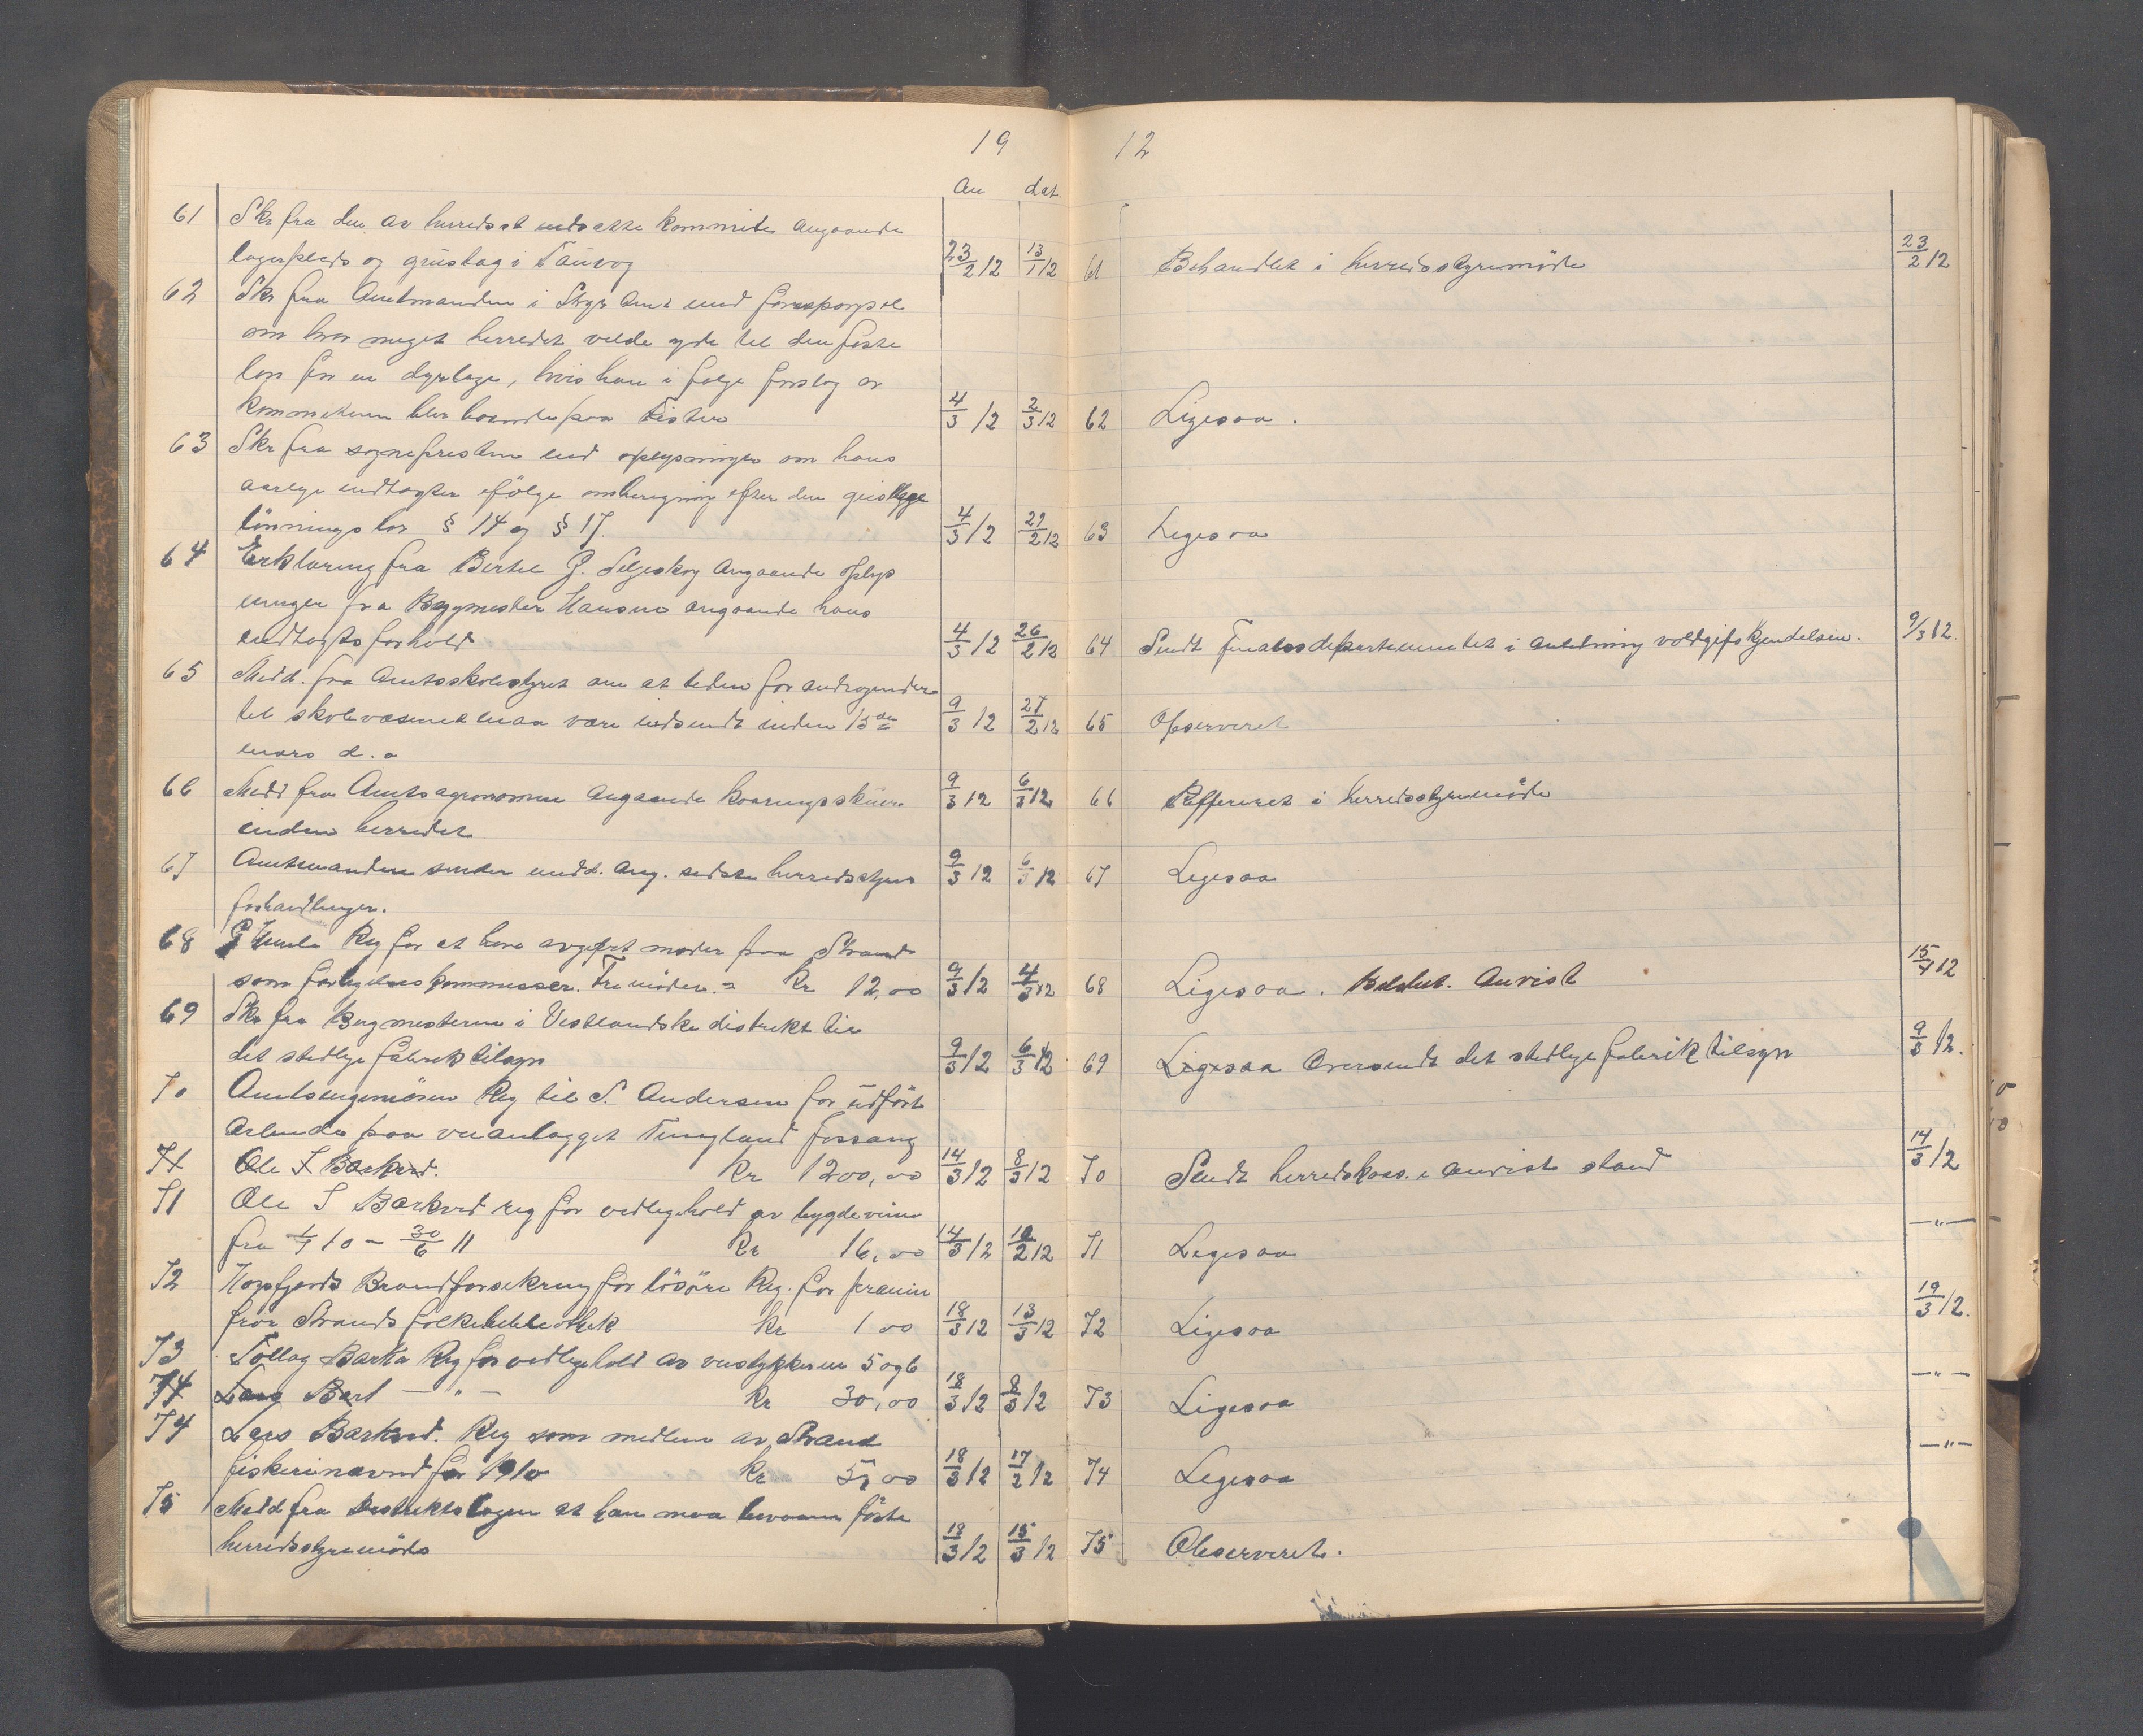 19 12
An dat.
61 Skr fra den av herredet nedsatte kommite angaaende
lagerplads og grustag i Tauvog 23/2 12 13/1 12 61 Behandlet i herredsstyremöde 23/2 12
62 Skr fra Amtmanden i Stvgr Amt med forespörsel
om hvor meget herredet vilde yde til den faste
lön for en dyrlæge, hvis han i følge forslag av
kommiteen blev boende paa Fister 4/3 12 2/3 12 62 Ligesaa.
63 Skr fra sognepresten med oplysninger om hans
aarlige indtægter ifölge omberegning efter den geistlige
lönningslov § 14 og § 17. 4/3 12 29/2 12 63 Ligesaa
64 Erklæring fra Bertel G. Seljeskog Angaaende oplys
ninger fra Bygmester Hansen angaaende hans
indtægtsforhold 4/3 12 26/2 12 64 Sendt Finansdepartementet i anledning voldgifskjendelsen. 9/3 12.
65 Medd. fra Amtsskolestyret om at tiden for andragender
til skolevæsenet maa være indsendt inden 15de 9/3 12 27/2 12 65 Observeret
mars d. a
66 Medd fra Amtsagronomen angaaende kaaringsskuer 9/3 12 6/3 12 66 Reffereret i herredsstyremöde
inden herredet
67 Amtmanden sender medd. ang. sidste herredsstyres 9/3 12 6/3 12 67 Ligesaa
forhandlinger.
68 Reg for at have avgivet møder paa Strand
som forligelseskommisser. Tre möder = Kr 12,00 9/3 12 4/3 12 68 Ligesaa. Beslut. Anvist 15/4 12
69 Skr fra Bergmesteren i Vestlandske distrikt til
det stedlige fabriktilsyn 9/3 12 6/3 12 69 Ligesaa Oversendt det stedlige fabriktilsyn 9/3 12.
70 Amtsingeniören Reg til S. Andersen for udfört
Arbeide paa veianlægget Tungland Fossang
71 Ole T Barkved. Kr 1200,00 14/3 12 8/3 12 70 Sendt herredskass. i anvist stand 14/3 12
71 Ole T Barkved reg for vedligehold av bygdeveien
fra 1/7 10 - 30/6 11 Kr 16,00 14/3 12 10/2 12 71 Ligesaa —"—
72 Högsfjords Brandforsikring for lösöre Reg. for præmie
for Strands folkebibliothek kr 1 00 18/3 12 13/3 12 72 Ligesaa 19/3 12.
73 Tollag Barka Reg for vedligehold av veistykkerne 5 og 6
74 Lars Bark — " — Kr 30,00 18/3 12 8/3 12 73 Ligesaa —"—
74 Lars Barkved. Reg som medlem av Strand
fiskerinævnd for 1910 Kr 5,00 18/3 12 17/2 12 74 Ligesaa —"—
75 Medd fra Distriktslægen at han maa bivaane förste
herredsstyremöde 18/3 12 15/3 12 75 Observeret.